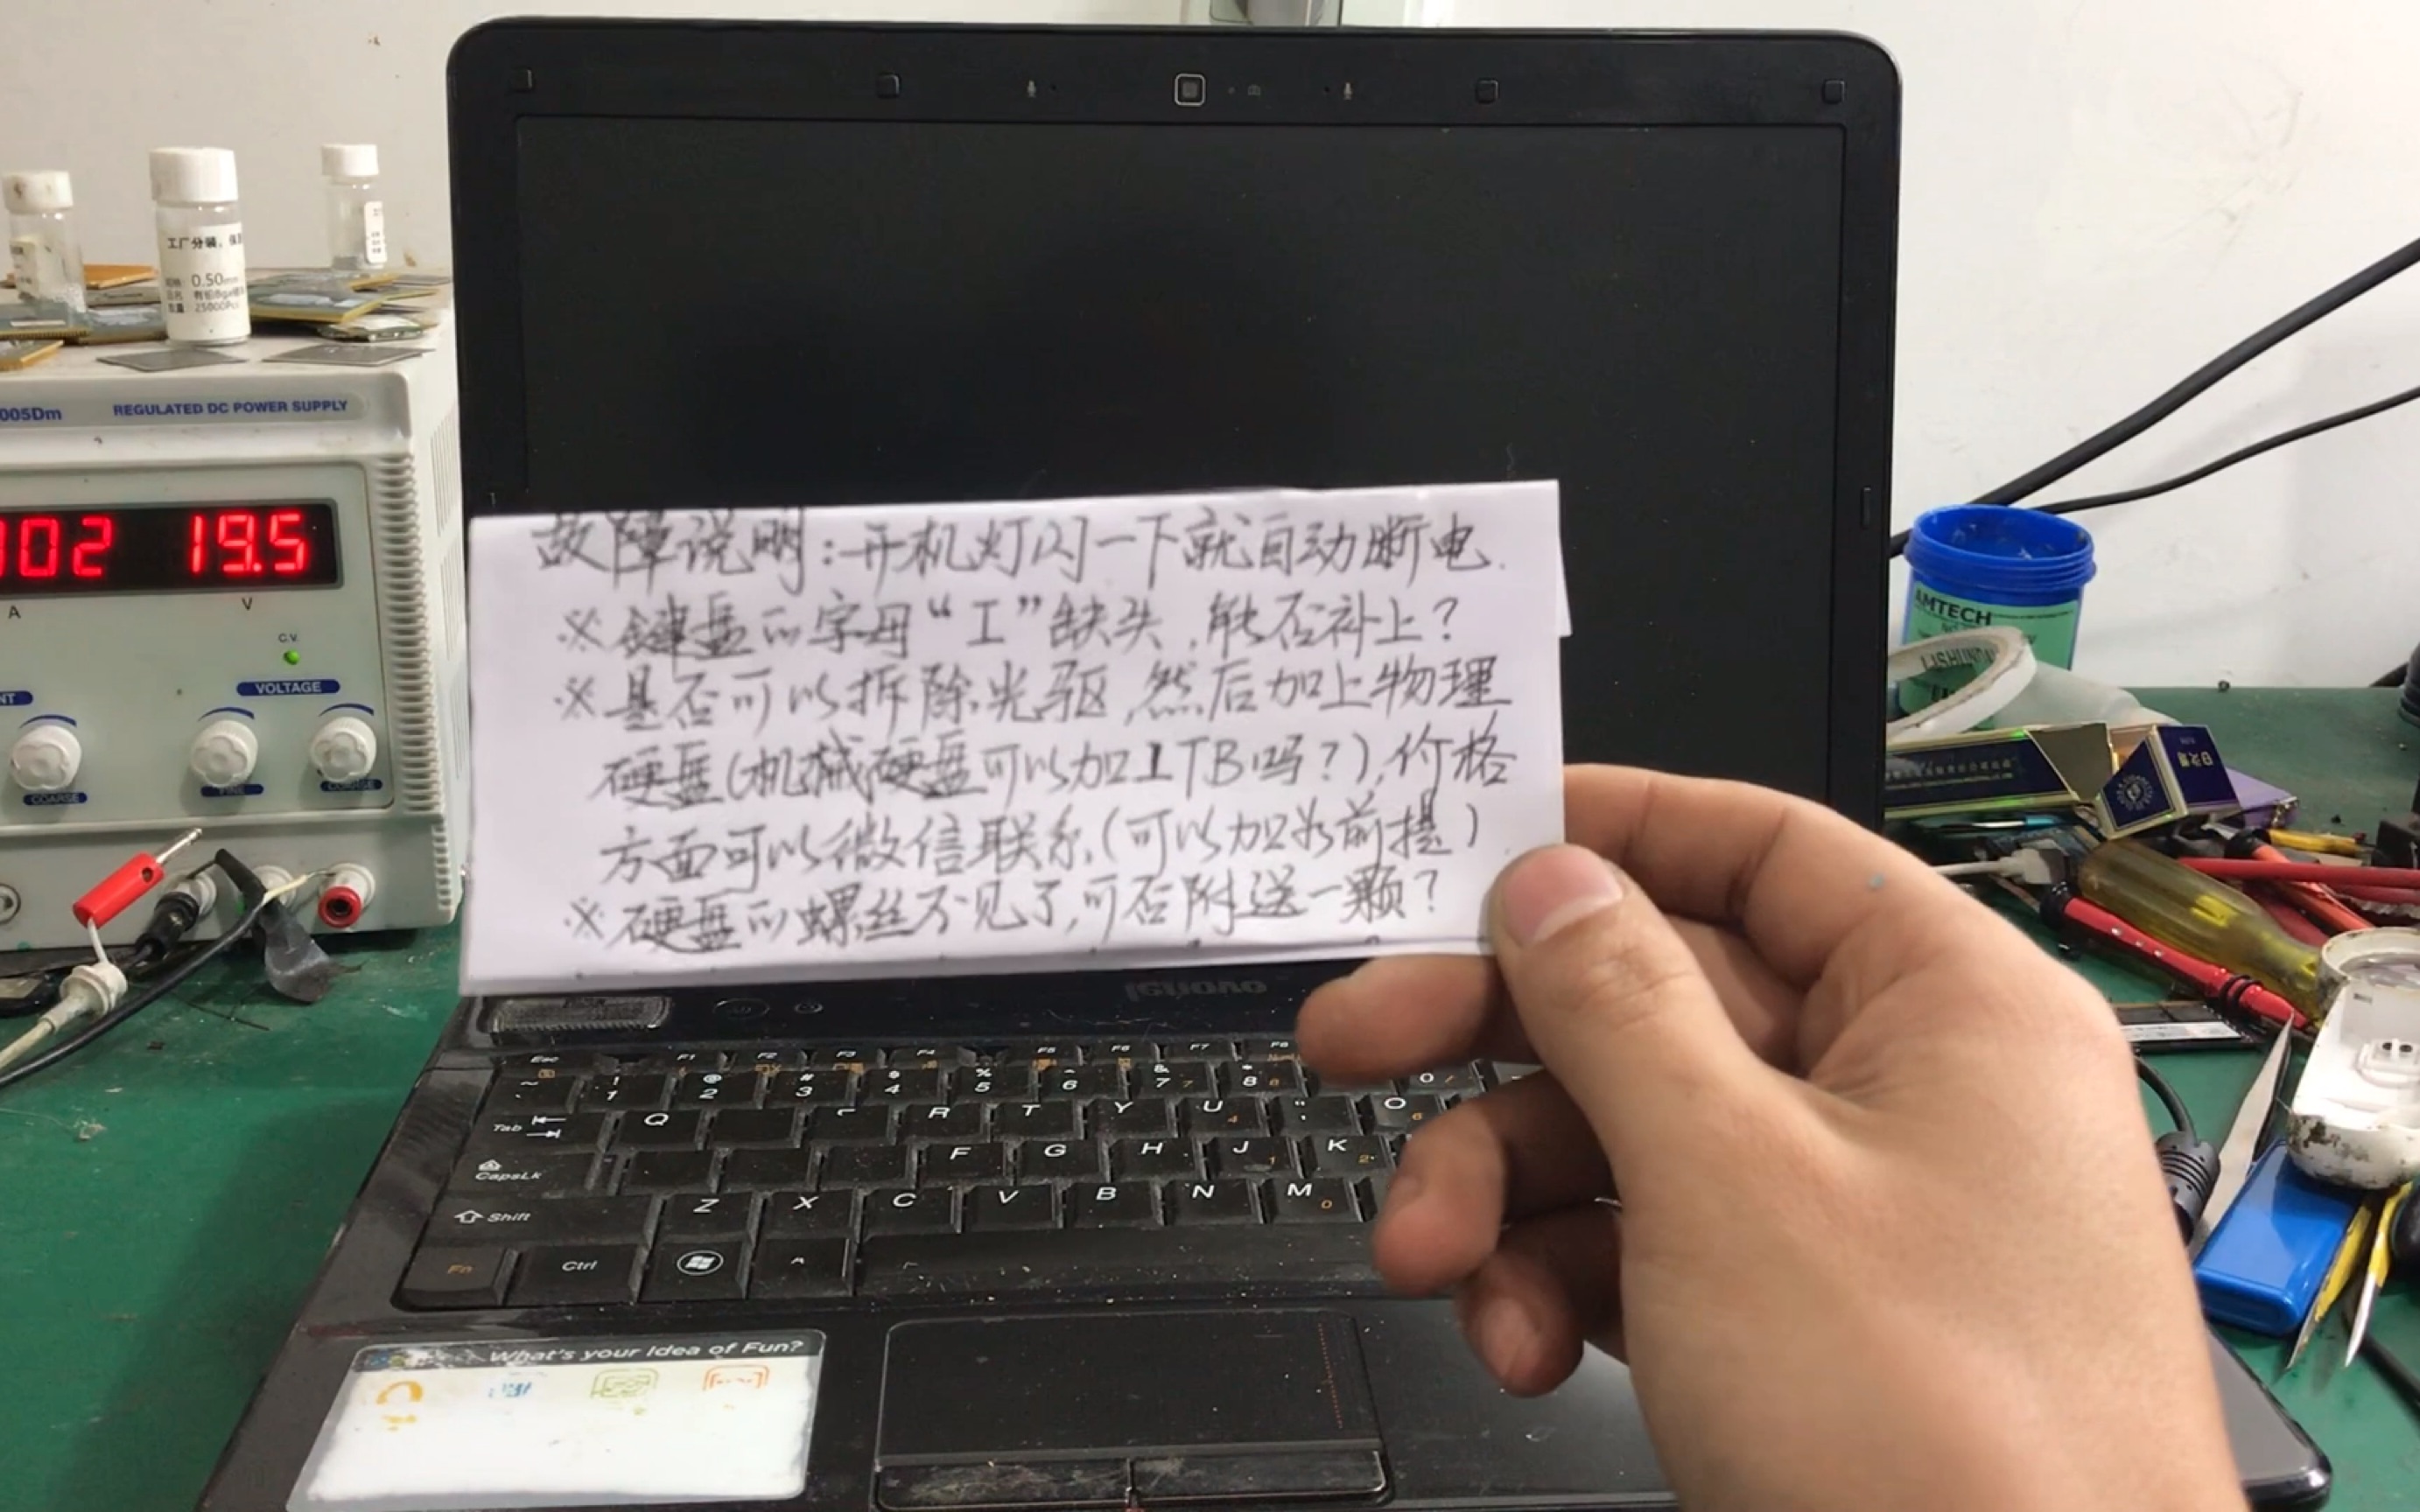 工厂分装,保
0.50mm
25000Pcs
005Dm REGULATED DC POWER SUPPLY
002 19.5
A V
C.V.
VOLTAGE
COARSE FINE COARSE
故障说明:开机灯闪一下就自动断电.
※键盘的字母“I”缺失,能否补上?
※是否可以拆除光驱,然后加上物理
硬盘(机械硬盘可以加1TB吗?),价格
方面可以微信联系(可以加为前提)
※硬盘的螺丝不见了,可否附送一颗?
AMTECH
LISHUN
lenovo
Esc F1 F2 F3 F4 F5 F6 F7 F8
~ ! @ # $ % ^ & *
` 1 2 3 4 5 6 7 7 8 8 0 /
Tab Q R T Y U 4 O 6
CapsLk F G H J 1 K 2
Shift Z X C V B N M 0
Fn Ctrl
What's your Idea of Fun?